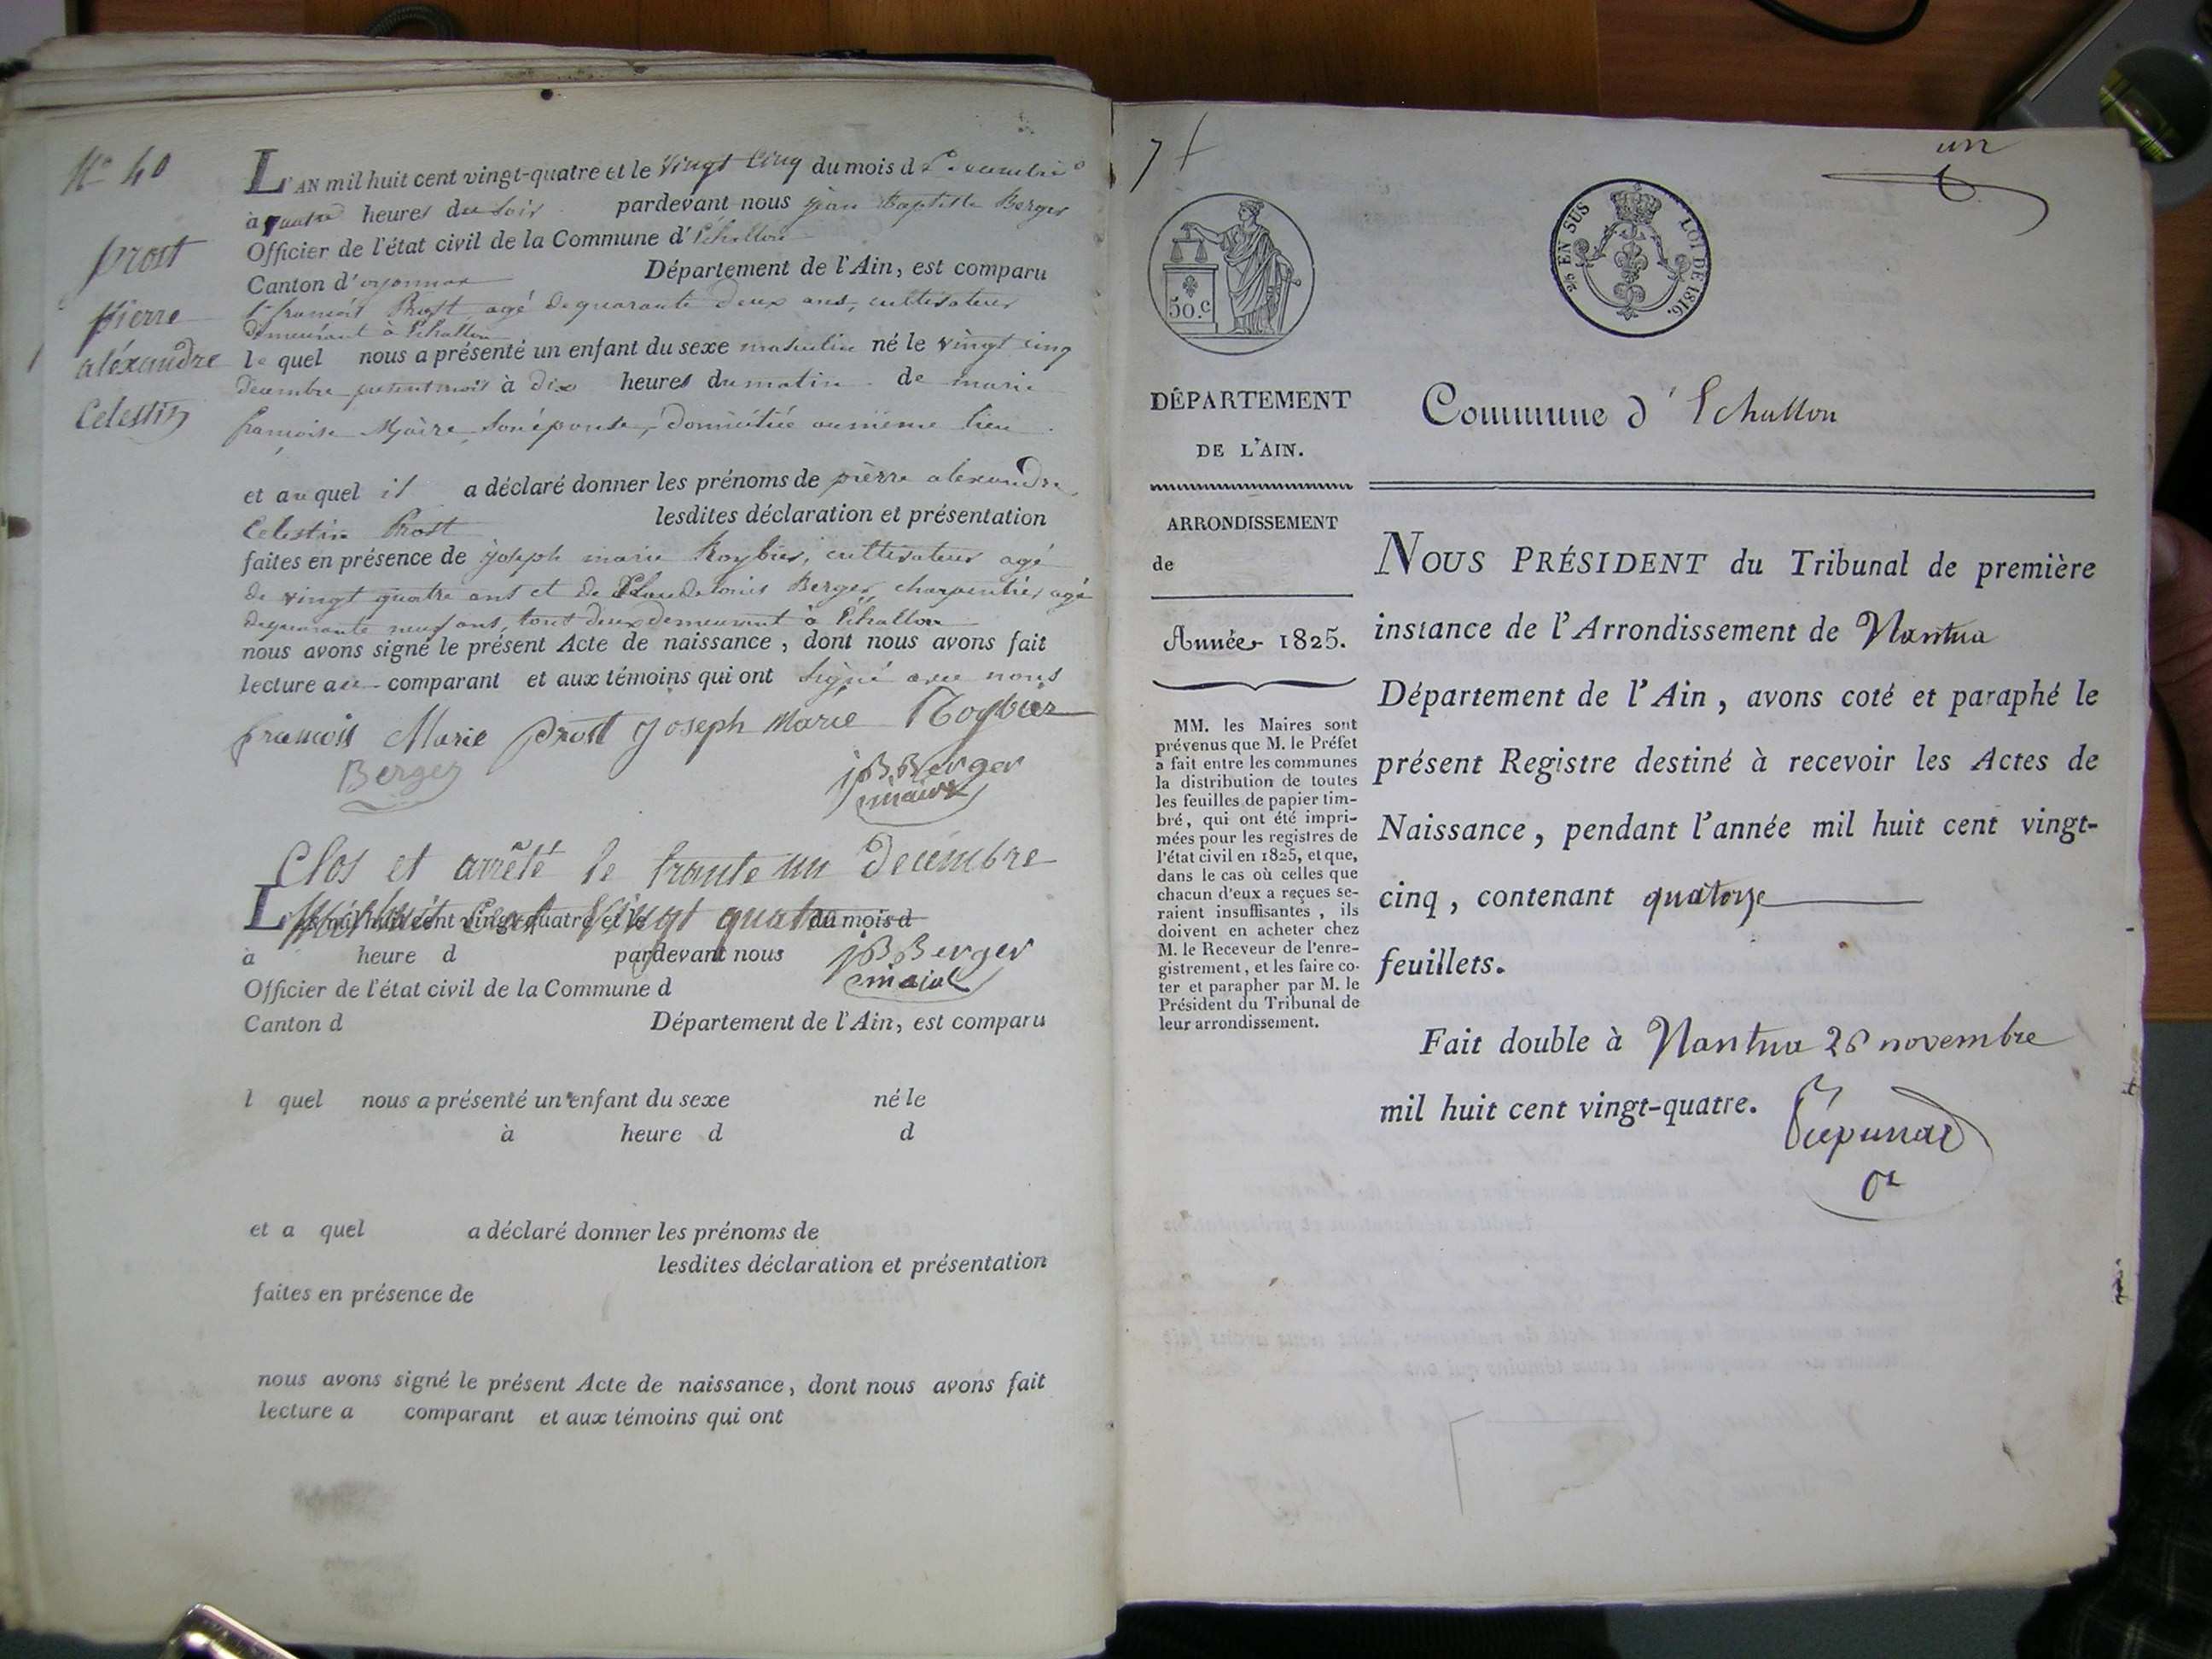 N° 40
Prost
pierre
aléxandre
Celestin
L'AN mil huit cent vingt-quatre et le vingt cinq du mois d Decembre
à quatre heures du soir pardevant nous jean Baptiste Berger
Officier de l'état civil de la Commune d'Echallon
Canton d'oyonnax Département de l'Ain, est comparu
françois Prost agé de quarante deux ans, cultivateur
demeurant à Echallon
le quel nous a présenté un enfant du sexe masculin né le vingt cinq
decembre present mois à dix heures du matin de marie
françoise Maire son épouse, domiciliée au même lieu
et au quel il a déclaré donner les prénoms de pierre alexandre
Celestin Prost lesdites déclaration et présentation
faites en présence de joseph marie Roybier, cultivateur agé
de vingt quatre ans et de Claude Louis Berger, charpentier agé
de quarante neuf ans, tout deux demeurant à Echallon
nous avons signé le présent Acte de naissance, dont nous avons fait
lecture au comparant et aux témoins qui ont signé avec nous
francois Marie prost joseph Marie Roybier
Berger
jB Berger
maire
Clos et arrêté le trante un Decembre
L'AN mil huit cent vingt-quatre et le du mois d
Mil huit Cent Vingt quatre
à heure d pardevant nous
jB Berger
maire
Officier de l'état civil de la Commune d
Canton d Département de l'Ain, est comparu
l quel nous a présenté un enfant du sexe né le
à heure d d
et a quel a déclaré donner les prénoms de
lesdites déclaration et présentation
faites en présence de
nous avons signé le présent Acte de naissance, dont nous avons fait
lecture a comparant et aux témoins qui ont
un
50.c
EN SUS LOI DE 1816.
DÉPARTEMENT
DE L'AIN.
ARRONDISSEMENT
de
Année 1825.
MM. les Maires sont
prévenus que M. le Préfet
a fait entre les communes
la distribution de toutes
les feuilles de papier tim-
bré, qui ont été impri-
mées pour les registres de
l'état civil en 1825, et que,
dans le cas où celles que
chacun d'eux a reçues se-
raient insuffisantes, ils
doivent en acheter chez
M. le Receveur de l'enre-
gistrement, et les faire co-
ter et parapher par M. le
Président du Tribunal de
leur arrondissement.
Commune d'Echallon
NOUS PRÉSIDENT du Tribunal de première
instance de l'Arrondissement de Nantua
Département de l'Ain, avons coté et paraphé le
présent Registre destiné à recevoir les Actes de
Naissance, pendant l'année mil huit cent vingt-
cinq, contenant quatorze
feuillets.
Fait double à Nantua 26 novembre
mil huit cent vingt-quatre.